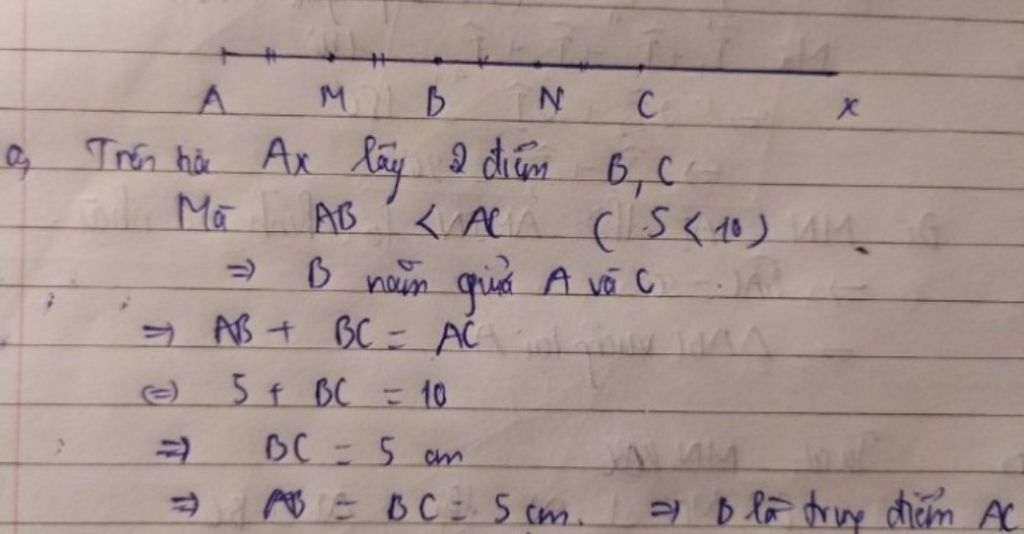 A M B N C x
a, Trên tia Ax lấy 2 điểm B, C
Mà AB < AC ( 5 < 10 )
=> B nằm giữa A và C
=> AB + BC = AC
<=> 5 + BC = 10
=> BC = 5 cm
=> AB = BC = 5 cm. => B là trung điểm AC